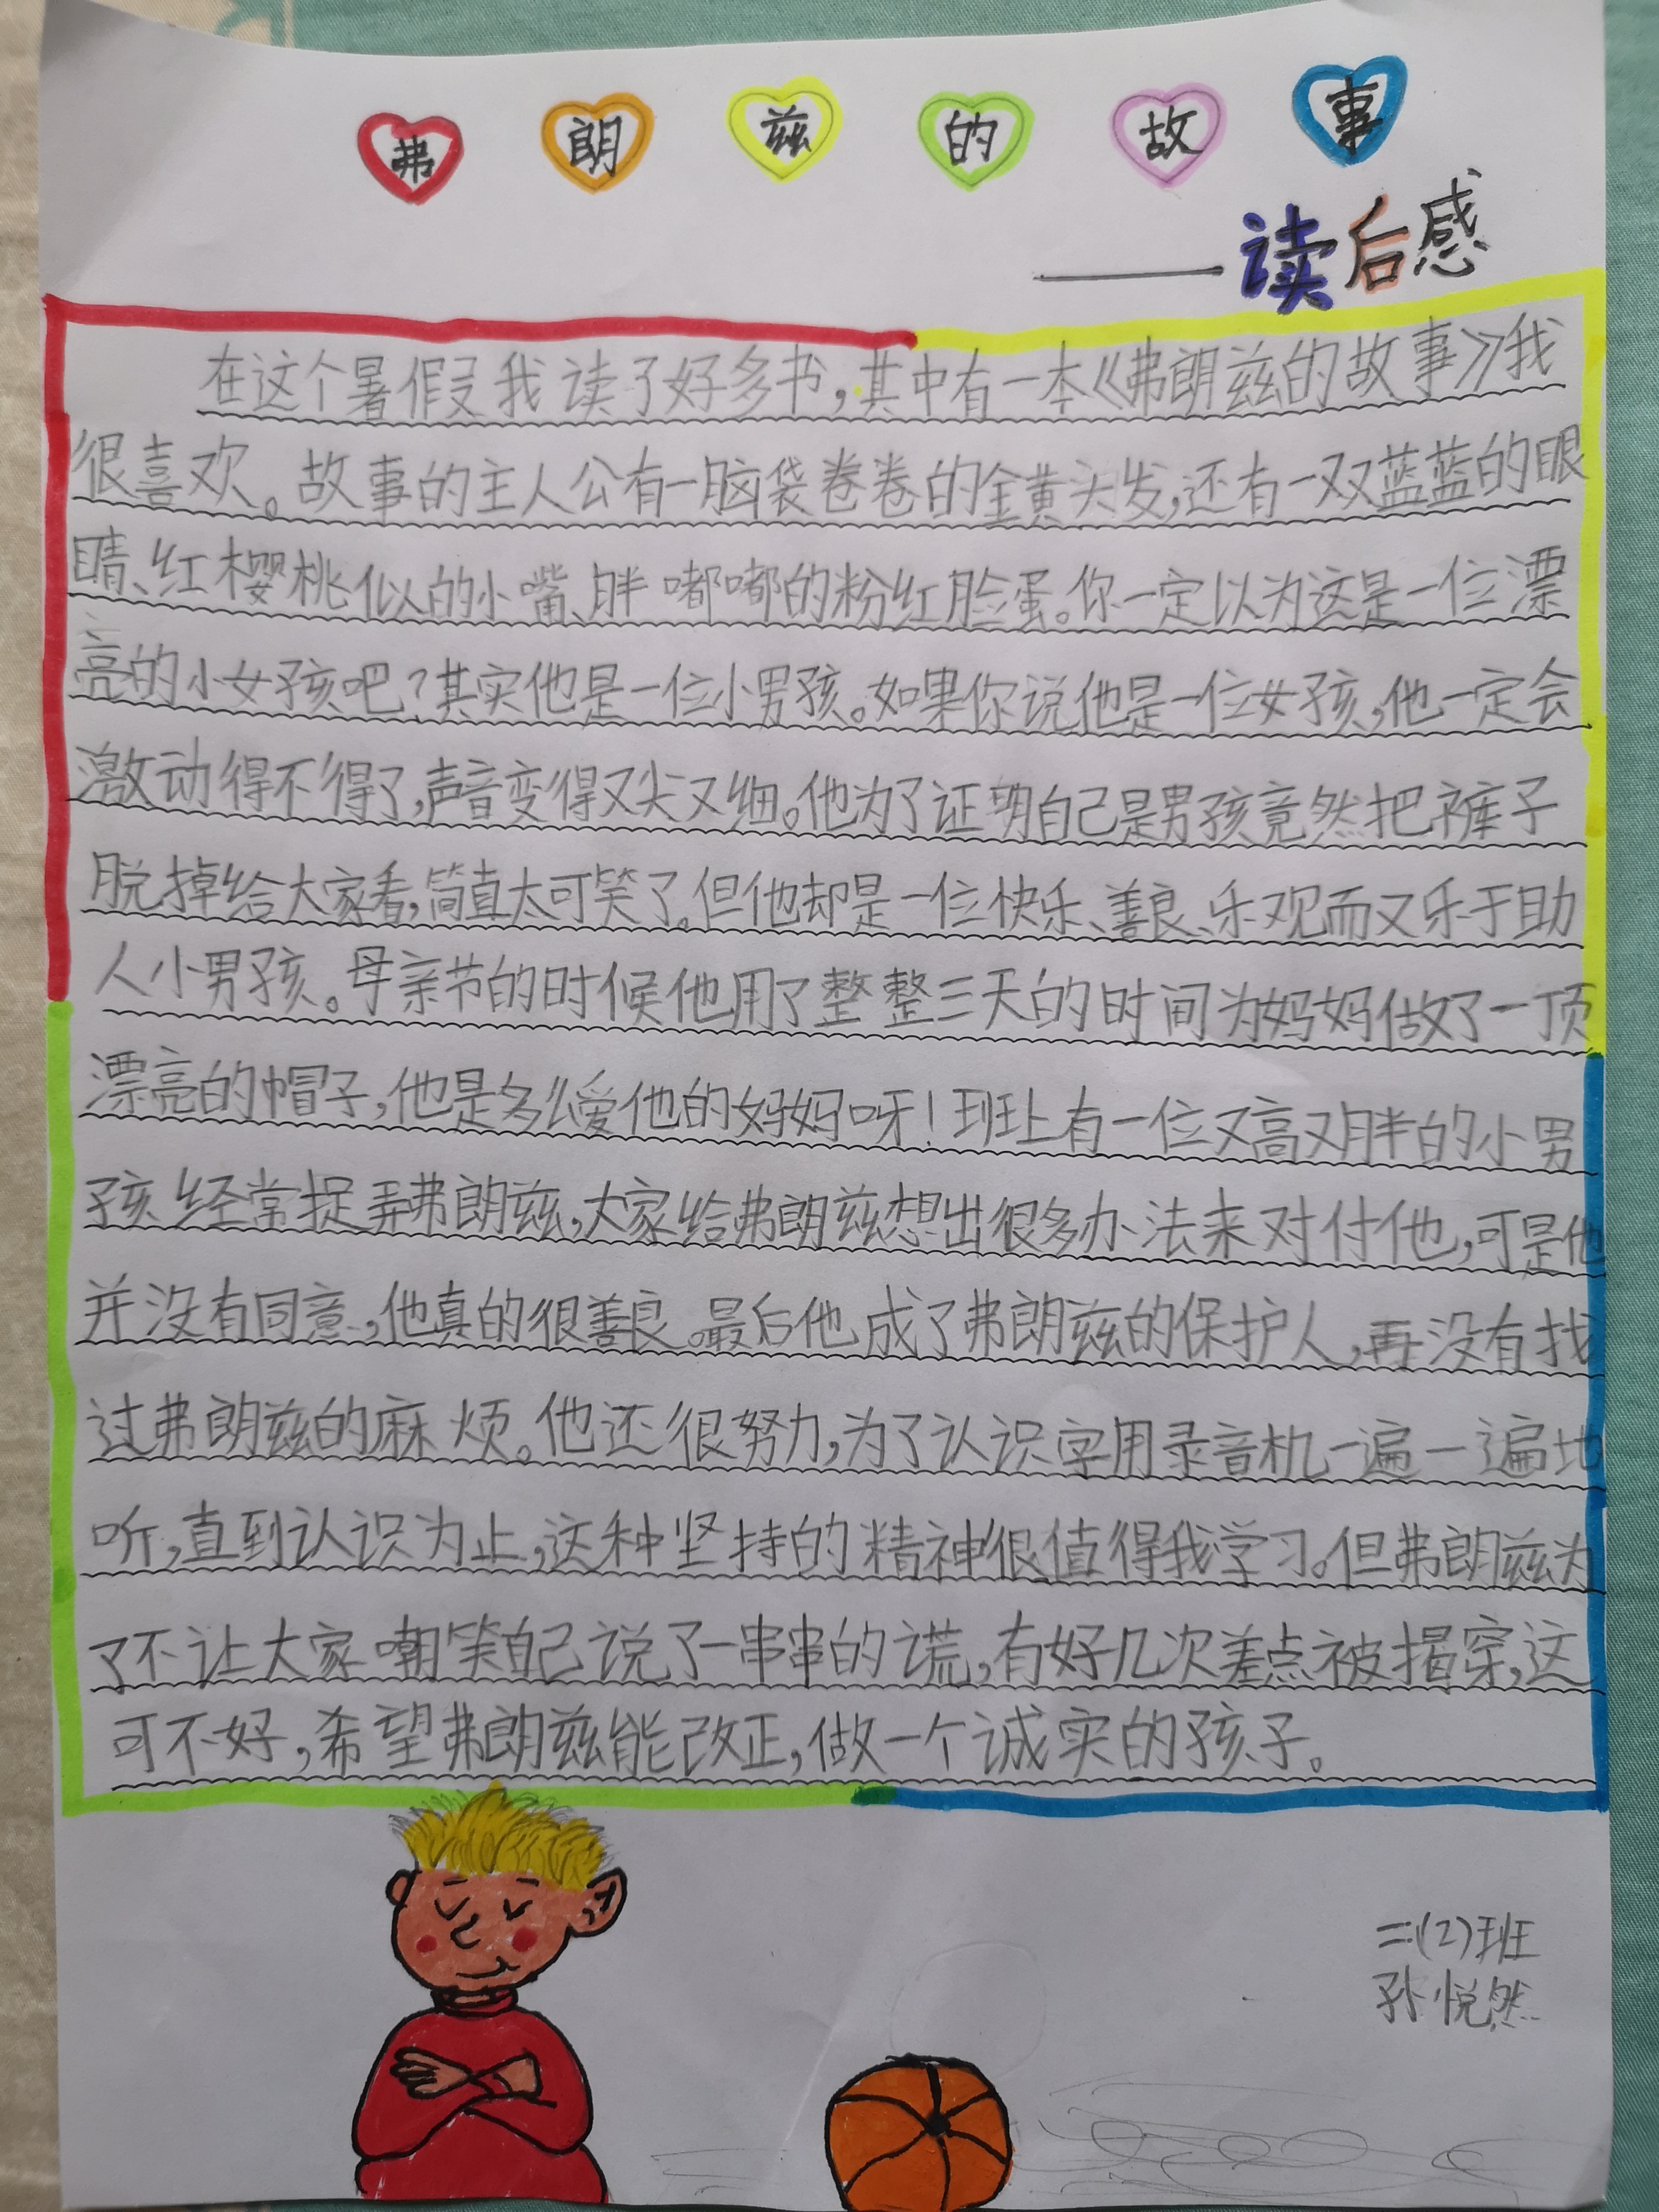 弗朗兹的故事
——读后感
在这个暑假我读了好多书，其中有一本《弗朗兹的故事》我
很喜欢。故事的主人公有一脑袋卷卷的金黄头发，还有一双蓝蓝的眼
睛、红樱桃似的小嘴、胖嘟嘟的粉红脸蛋。你一定以为这是一位漂
亮的小女孩吧？其实他是一位小男孩。如果你说他是一位女孩，他一定会
激动得不得了，声音变得又尖又细。他为了证明自己是男孩竟然把裤子
脱掉给大家看，简直太可笑了。但他却是一位快乐、善良、乐观而又乐于助
人小男孩。母亲节的时候他用了整整三天的时间为妈妈做了一顶
漂亮的帽子，他是多么爱他的妈妈呀！班上有一位又高又胖的小男
孩经常捉弄弗朗兹，大家给弗朗兹想出很多办法来对付他，可是他
并没有同意，他真的很善良。最后他成了弗朗兹的保护人，再没有找
过弗朗兹的麻烦。他还很努力，为了认识字用录音机一遍一遍地
听，直到认识为止，这种坚持的精神很值得我学习。但弗朗兹为
了不让大家嘲笑自己说了一串串的谎，有好几次差点被揭穿，这
可不好，希望弗朗兹能改正，做一个诚实的孩子。
二(2)班
孙悦然